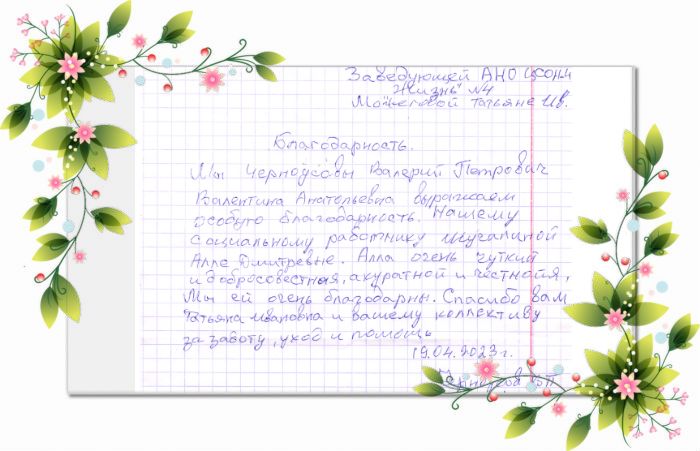 Заведующей АНО ЦСОН
Жизнь №4
Можеговой Татьяне Ив.
Благодарность.
Мы Черноусовы Валерий Петрович
Валентина Анатольевна выражаем
особую благодарность. Нашему
социальному работнику
Алле Дмитревне. Алла очень чуткий
и добросовестная, акуратной и честной,
Мы ей очень благодарны. Спасибо вам
Татьяна ивановна и вашему коллективу
за заботу, уход и помощь
19.04.2023 г.